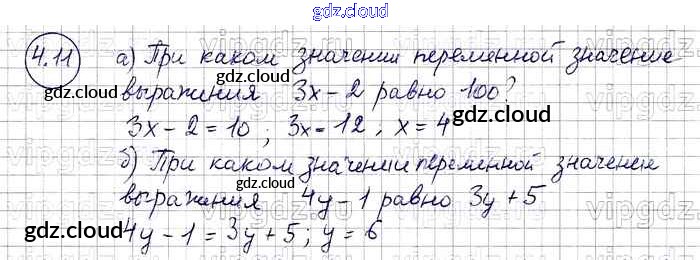 gdz.cloud
4.11 а) При каком значении переменной значение
gdz.cloud
выражения 3x-2 равно 100?
gdz.cloud
3x-2=10; 3x=12; x=4
б) При каком значении переменной значение
gdz.cloud
выражения 4y-1 равно 3y+5
gdz.cloud
4y-1=3y+5; y=6
gdz.cloud